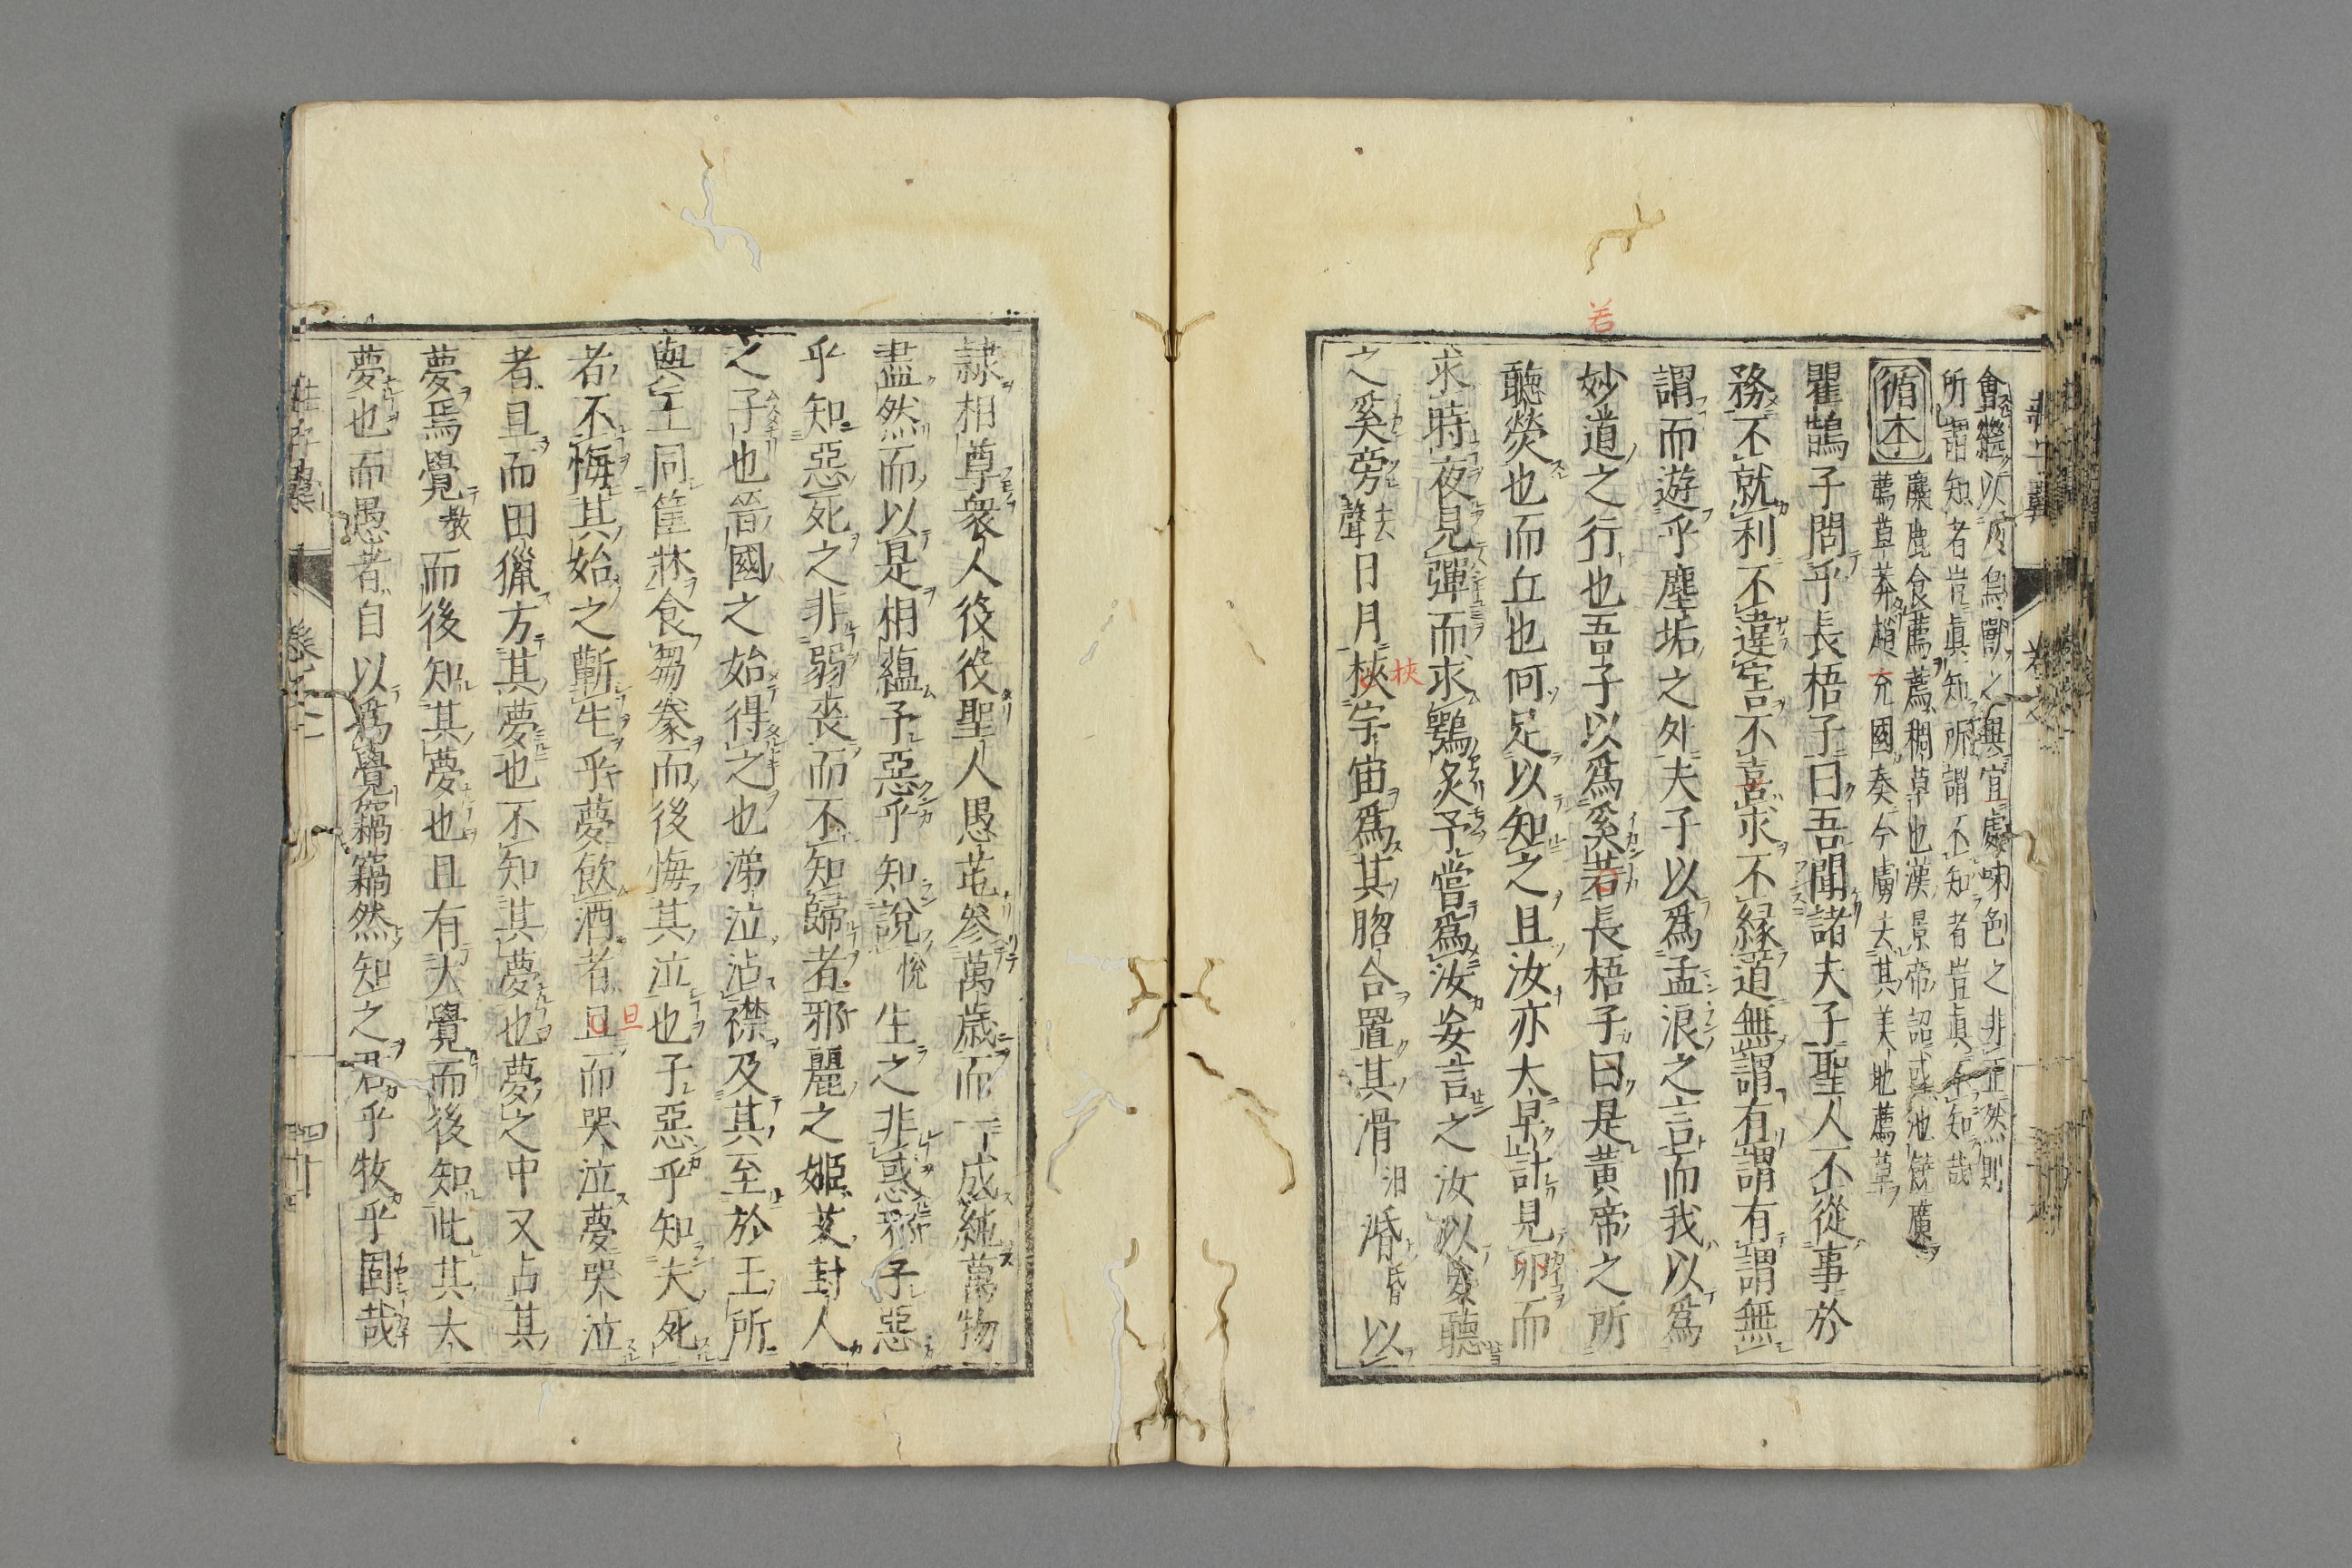 會繼以 鳥獸之與宜處味色之非正然則
所謂知者豈眞知所謂不知者豈眞不知哉
循本
麋鹿食薦薦稠草也漢景帝詔或地饒廣
薦草莽趙充國奏今虜去其美地薦草
瞿鵲子問乎長梧子曰吾聞諸夫子聖人不從事於
務不就利不違害不喜求不緣道無謂有謂有謂無
謂而遊乎塵垢之外夫子以爲孟浪之言而我以爲
妙道之行也吾子以爲奚若長梧子曰是黃帝之所
若
聽熒也而丘也何足以知之且汝亦太早計見卵而
求時夜見彈而求鴞炙予嘗爲汝妄言之汝以妄聽
之奚旁去聲日月挾宇宙爲其脗合置其滑汩涽昏以
挾
隷相尊衆人役役聖人愚芚參萬歲而一成純萬物
盡然而以是相蘊予惡乎知說悅生之非惑邪予惡
乎知惡死之非弱喪而不知歸者邪麗之姬艾封人
之子也晉國之始得之也涕泣沾襟及其至於王所
與王同筐牀食芻豢而後悔其泣也予惡乎知夫死
者不悔其始之蘄生乎夢飲酒者且而哭泣夢哭泣
旦
者且而田獵方其夢也不知其夢也夢之中又占其
夢焉覺教而後知其夢也且有大覺而後知此其大
夢也而愚者自以爲覺竊竊然知之君乎牧乎固哉
莊子翼 卷之二 四十